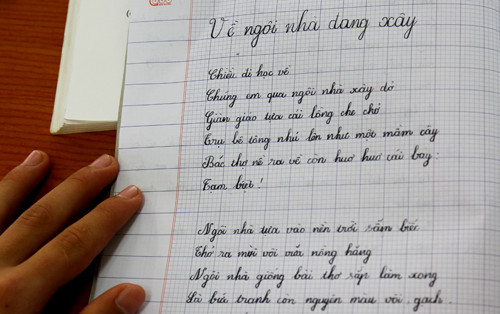 Về ngôi nhà đang xây
Chiều đi học về
Chúng em qua ngôi nhà xây dở
Giàn giáo tựa cái lồng che chở
Trụ bê tông nhú lên như một mầm cây
Bác thợ nề ra về còn huơ huơ cái bay:
Tạm biệt!
Ngôi nhà tựa vào nền trời sẫm biếc
Thở ra mùi vôi vữa nồng hăng
Ngôi nhà giống bài thơ sắp làm xong
Là bức tranh còn nguyên màu vôi, gạch.